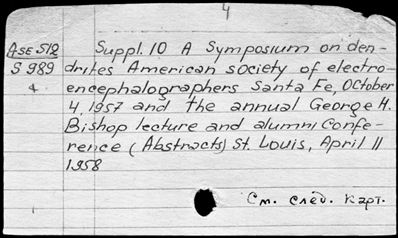 4
ASE512 Suppl. 10 A Symposium on den-
S989 drites American society of electro-
4 encephalographers Santa Fe, October
4 1957 and the annual George H.
Bishop lecture and alumni confe-
rence (Abstracts) St. Louis, April 11
1958
См. след. карт.